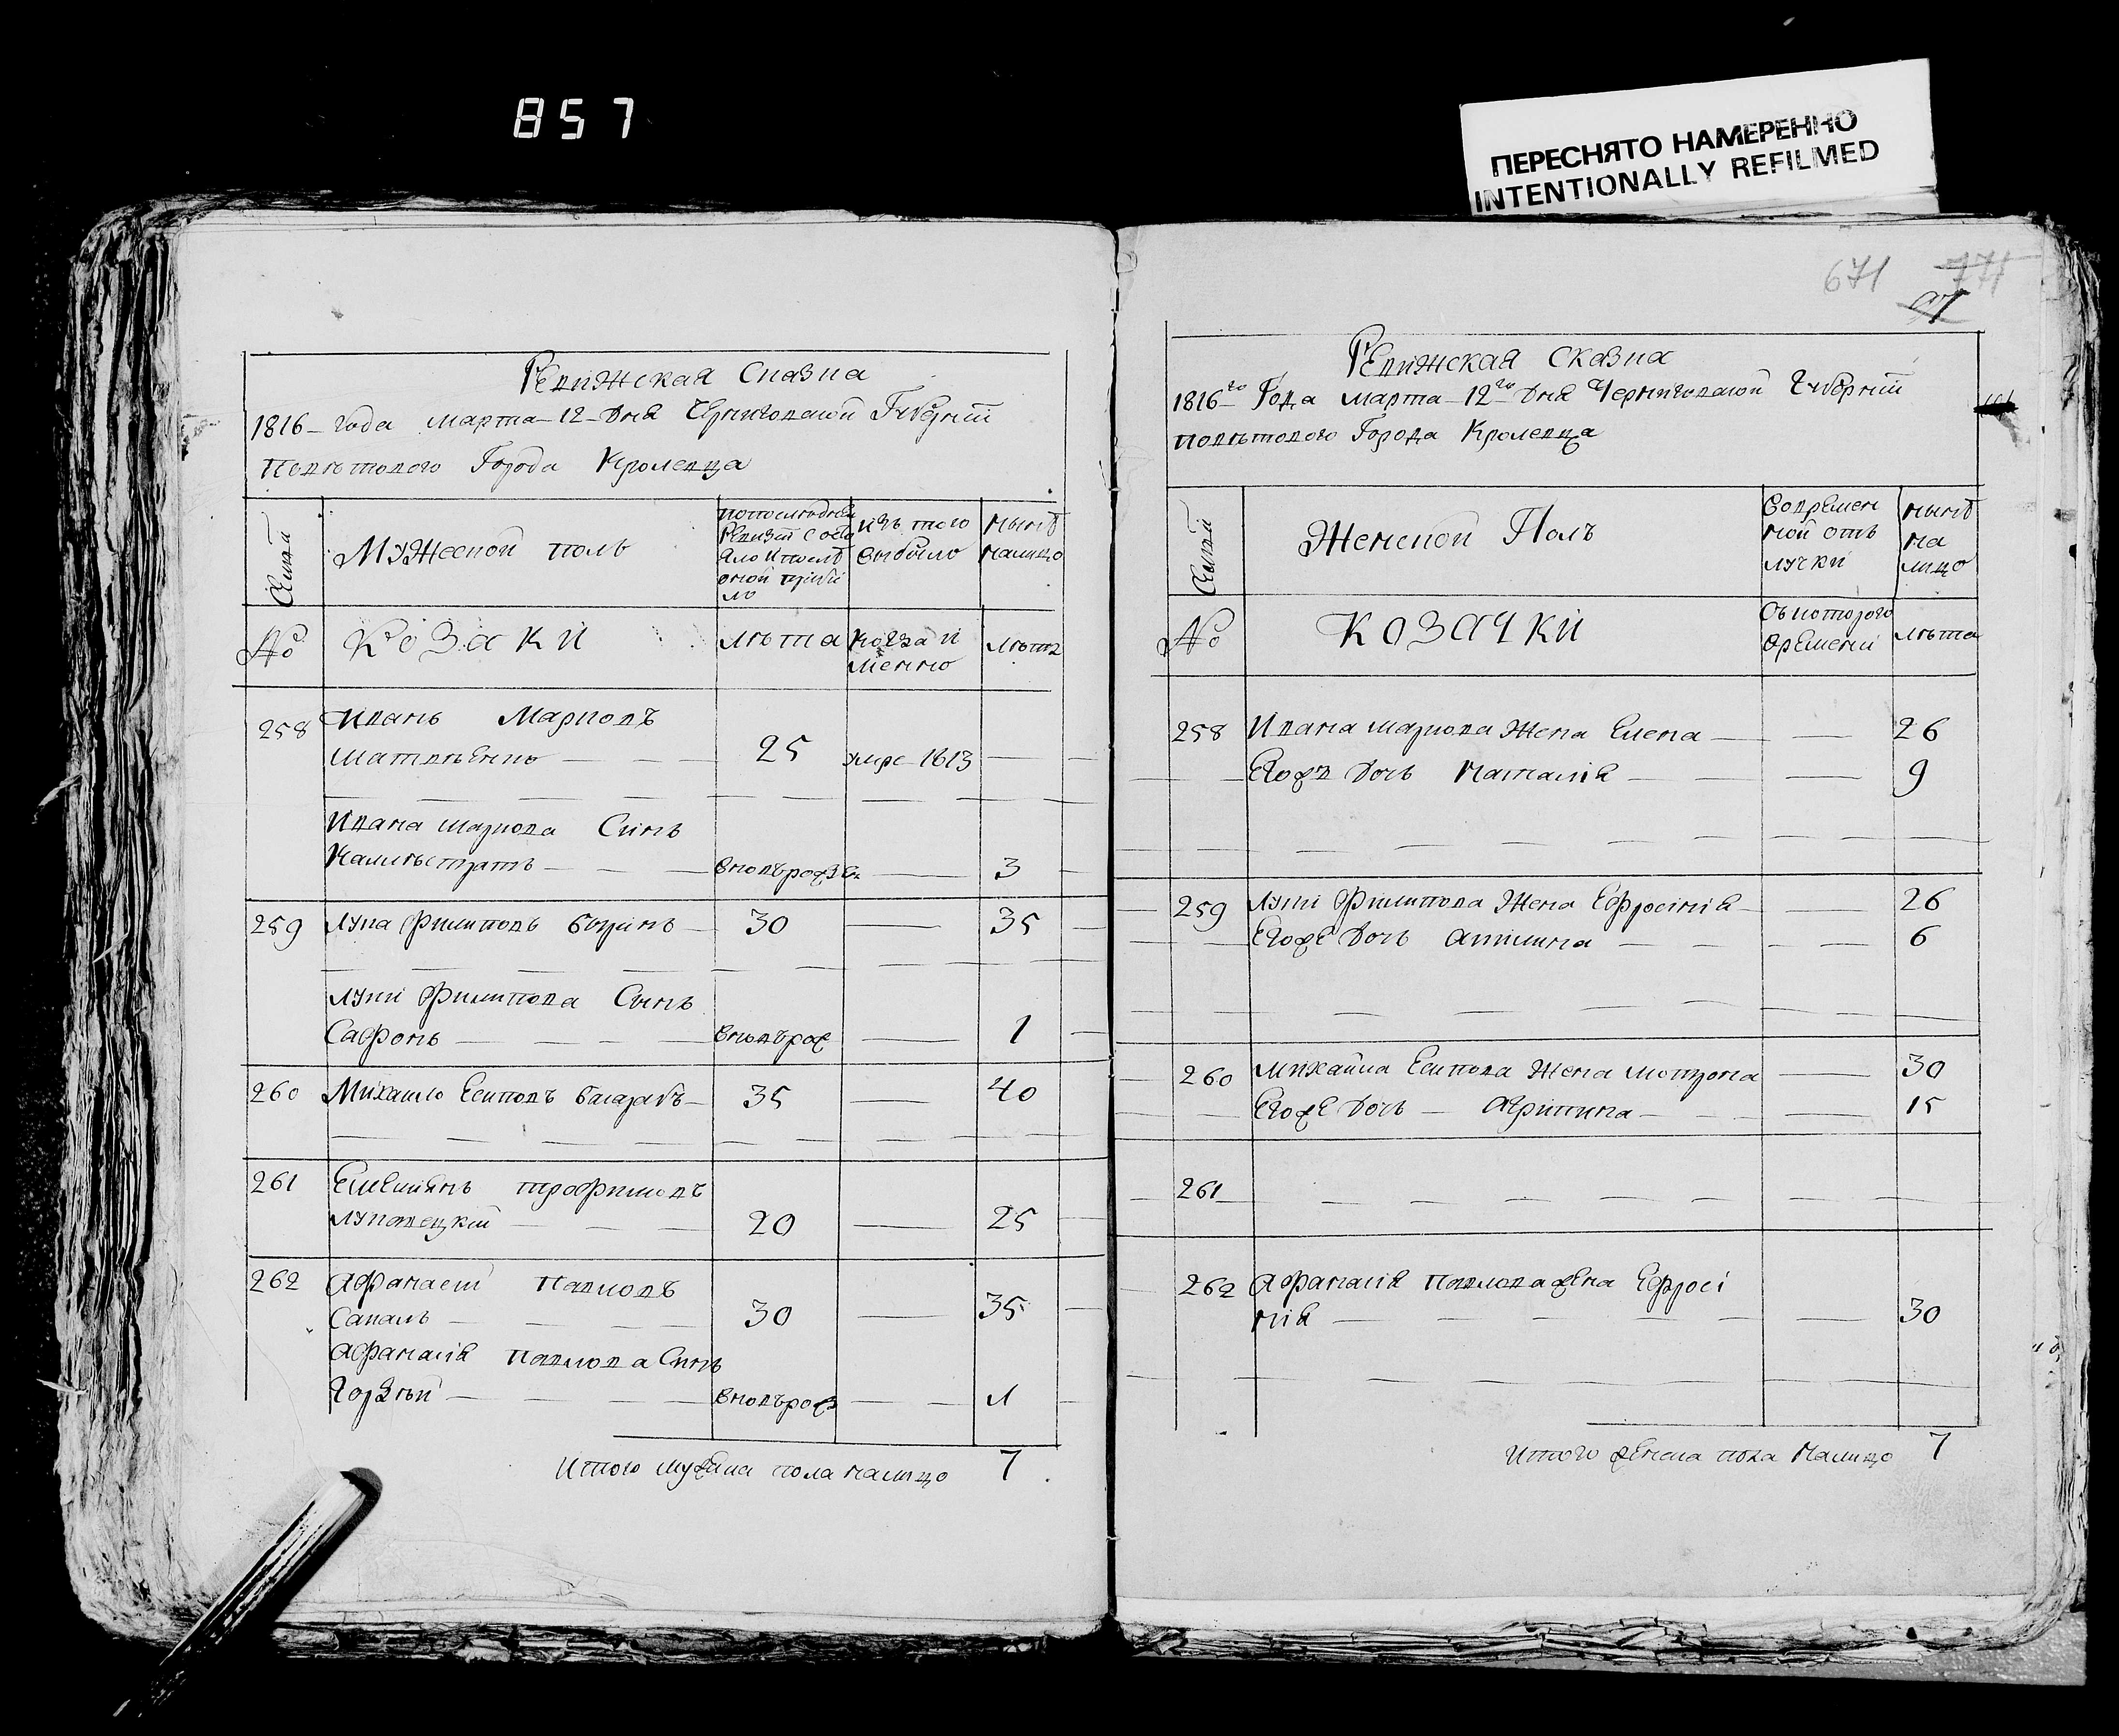 857
ПЕРЕСНЯТО НАМЕРЕННО
INTENTIONALLY REFILMED
671 771
Ревижская Сказка
1816 года марта 12 дня Черниговской Губерніи
Поветового Города Кролевца
Семьи
Мужеской полъ
По последней Ревизіи состояло и после оной прибыло
изъ того выбыло
ныне налицо
№
Козаки
лета
когда именно
лета
258 Иванъ Марковъ
Матвеенко 25 умре 1813
Ивана Маркова Синъ
Калистратъ вновърожденъ 3
259 Лука Филиповъ 30 35
Луки Филипова Сынъ
Сафронъ вновърож 1
260 Михайло Есиповъ 35 40
261 Емельянъ Трофимовъ
20 25
262 Афанасий Павловъ
30 35
Афанасія Павлова Синъ
Гордей вновърож 1
Итого мужеска пола налицо 7
Ревижская Сказка
1816го Года марта 12го дня Черниговской Губерніи
поветового Города Кролевца
Семьи
Женской Полъ
Во временной отлучки
ныне на лицо
№
КОЗАЧКИ
Съ которого времени
лета
258 Ивана Маркова Жена Елена 26
Егоже дочь Наталія 9
259 Луки Филипова Жена Ефросинія 26
Егоже дочь Акилина 6
260 Михайла Есипова Жена Мотрона 30
Егоже дочь Агрипина 15
261
262 Афанасія Павлова жена Ефроси
нія 30
Итого женска пола налицо 7